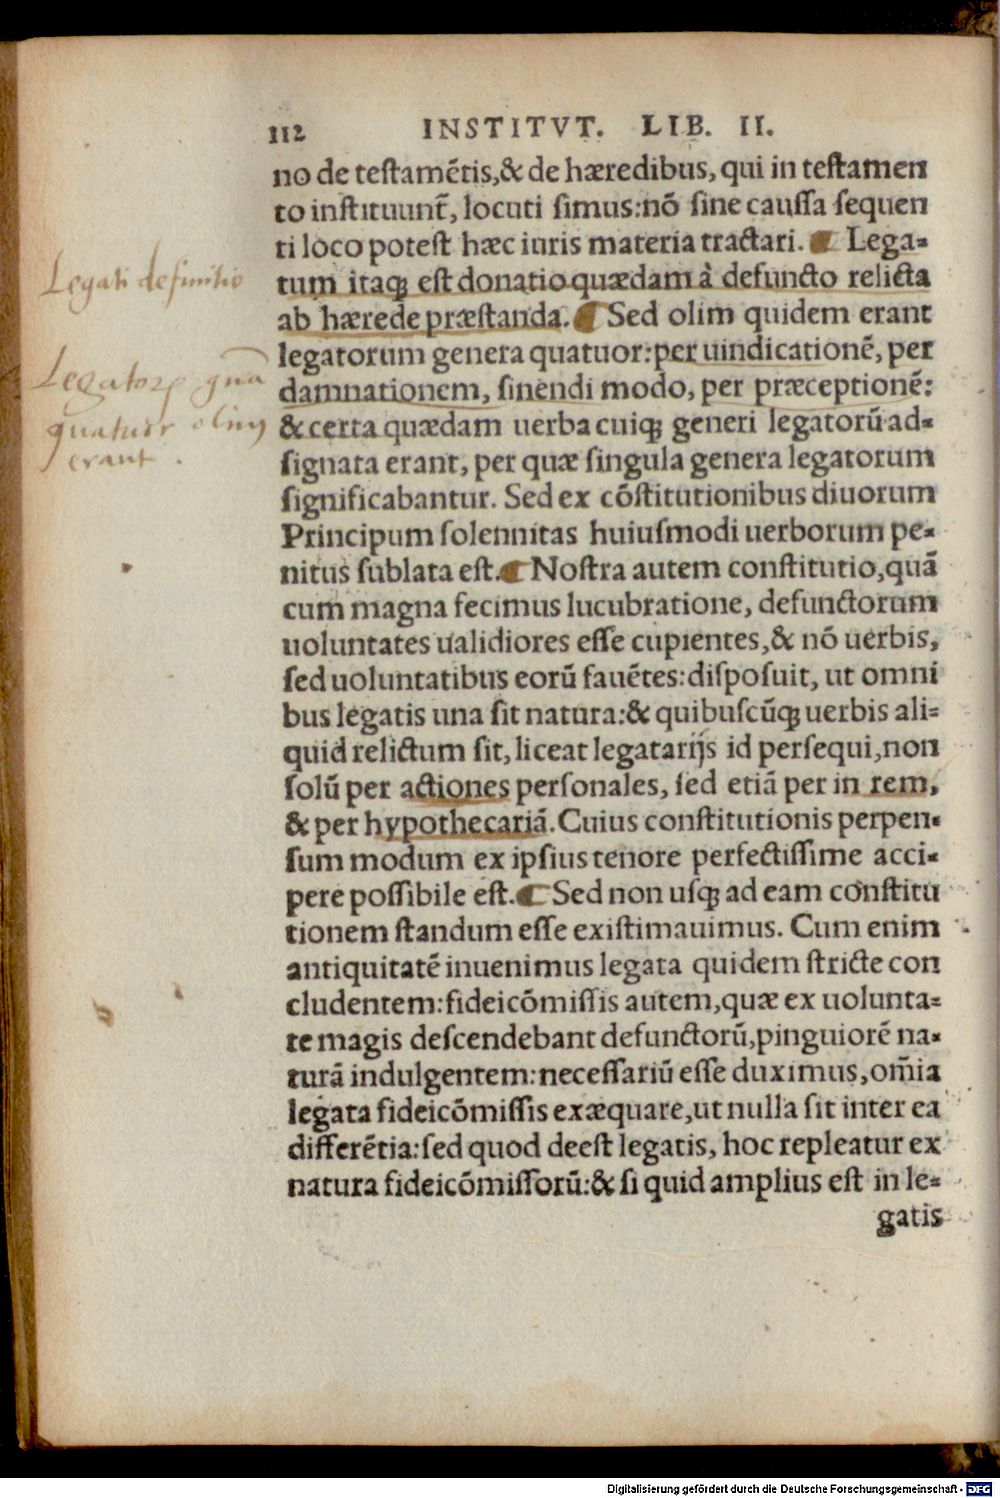 112 INSTITVT. LIB. II.
no de testamẽtis,& de hæredibus, qui in testamen
to instituunt̃, locuti simus:nõ sine caussa sequen
ti loco potest hæc iuris materia tractari. ¶ Lega-
Legati definitio
tum itaqꝫ est donatio quædam à defuncto relicta
ab hærede præstanda. ¶ Sed olim quidem erant
legatorum genera quatuor:per uindicationẽ, per
Legatoꝝ gña
quatuor olim
erant.
damnationem, sinendi modo, per præceptionẽ:
& certa quædam uerba cuiqꝫ generi legatorũ ad-
signata erant, per quæ singula genera legatorum
significabantur. Sed ex cõstitutionibus diuorum
Principum solennitas huiusmodi uerborum pe-
nitus sublata est. ¶ Nostra autem constitutio,quã
cum magna fecimus lucubratione, defunctorum
uoluntates ualidiores esse cupientes,& nõ uerbis,
sed uoluntatibus eorũ fauẽtes:disposuit, ut omni
bus legatis una sit natura:& quibuscũqꝫ uerbis ali-
quid relictum sit, liceat legatarijs id persequi,non
solũ per actiones personales, sed etiã per in rem,
& per hypothecariã. Cuius constitutionis perpen-
sum modum ex ipsius tenore perfectissime acci-
pere possibile est. ¶ Sed non usqꝫ ad eam constitu
tionem standum esse existimauimus. Cum enim
antiquitatẽ inuenimus legata quidem stricte con
cludentem:fideicõmissis autem,quæ ex uolunta-
te magis descendebant defunctorũ,pinguiorẽ na-
turã indulgentem:necessariũ esse duximus,om̃ia
legata fideicõmissis exæquare,ut nulla sit inter ea
differẽtia:sed quod deest legatis, hoc repleatur ex
natura fideicõmissorũ:& si quid amplius est in le-
gatis
Digitalisierung gefördert durch die Deutsche Forschungsgemeinschaft - DFG